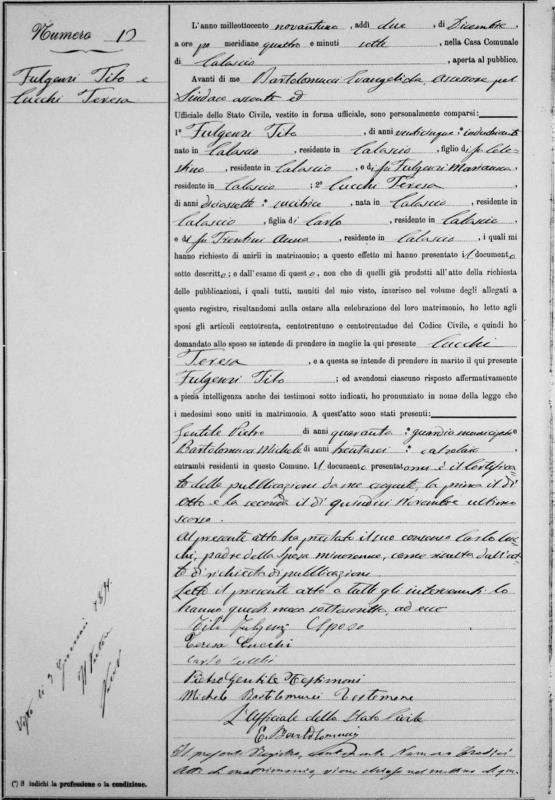 Numero 13
Fulgenzi Tito e
Cucchi Teresa
L'anno milleottocento novantuno, addì due, di Dicembre,
a ore po meridiane quattro e minuti sette, nella Casa Comunale
di Calascio, aperta al pubblico.
Avanti di me Bartolomucci Evangelista, assessore pel
Sindaco assente ed
Ufficiale dello Stato Civile, vestito in forma ufficiale, sono personalmente comparsi:
1° Fulgenzi Tito, di anni venticinque: industriante
nato in Calascio, residente in Calascio, figlio di fu Cele-
stino, residente in Calascio, e di fu Fulgenzi Marianna,
residente in Calascio; 2° Cucchi Teresa,
di anni diciassette: cucitrice, nata in Calascio, residente in
Calascio, figlia di Carlo, residente in Calascio,
e di fu Trentini Anna, residente in Calascio, i quali mi
hanno richiesto di unirli in matrimonio; a questo effetto mi hanno presentato il documento
sotto descritto; e dall'esame di questo, non che di quelli già prodotti all'atto della richiesta
delle pubblicazioni, i quali tutti, muniti del mio visto, inserisco nel volume degli allegati a
questo registro, risultandomi nulla ostare alla celebrazione del loro matrimonio, ho letto agli
sposi gli articoli centotrenta, centotrentuno e centotrentadue del Codice Civile, e quindi ho
domandato allo sposo se intende di prendere in moglie la qui presente Cucchi
Teresa, e a questa se intende di prendere in marito il qui presente
Fulgenzi Tito; ed avendomi ciascuno risposto affermativamente
a piena intelligenza anche dei testimoni sotto indicati, ho pronunziato in nome della legge che
i medesimi sono uniti in matrimonio. A quest'atto sono stati presenti:
Gentile Pietro di anni quaranta: guardia municipale
Bartolomucci Michele di anni trentasei: calzolaio
entrambi residenti in questo Comune. Il documento presentatomi è il certifica-
to delle pubblicazioni da me eseguite, la prima il dì
otto e la seconda il dì quindici Novembre ultimo
scorso.
Al presente atto ha prestato il suo consenso Carlo Cuc-
chi, padre della sposa minorenne, come risulta dall'at-
to di richiesta di pubblicazione.
Letto il presente atto a tutti gli intervenuti lo
hanno questi meco sottoscritto, ad ecc
Tito Fulgenzi Sposo
Teresa Cucchi
Carlo Cucchi
Pietro Gentile Testimoni
Michele Bartolomucci Testimone
L'Ufficiale dello Stato Civile
E. Bartolomucci
Il presente Registro, contenente Numero tredici
atti di matrimonio, viene chiuso nel mattino di que-
Visto li 9 Gennaio
(*) Si indichi la professione o la condizione.